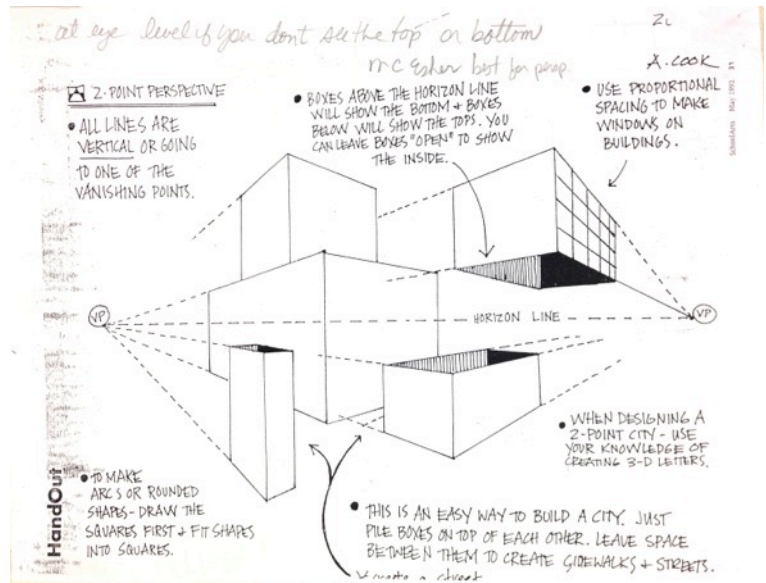 at eye level if you dont see the top or bottom
mc Esher best for persp.
A. COOK
2-POINT PERSPECTIVE
• ALL LINES ARE
VERTICAL OR GOING
TO ONE OF THE
VANISHING POINTS.
• BOXES ABOVE THE HORIZON LINE
WILL SHOW THE BOTTOM & BOXES
BELOW WILL SHOW THE TOPS. YOU
CAN LEAVE BOXES "OPEN" TO SHOW
THE INSIDE.
• USE PROPORTIONAL
SPACING TO MAKE
WINDOWS ON
BUILDINGS.
SchoolArts May 1992 31
VP
HORIZON LINE
VP
• WHEN DESIGNING A
2-POINT CITY - USE
YOUR KNOWLEDGE OF
CREATING 3-D LETTERS.
HandOut
• TO MAKE
ARCS OR ROUNDED
SHAPES - DRAW THE
SQUARES FIRST & FIT SHAPES
INTO SQUARES.
• THIS IS AN EASY WAY TO BUILD A CITY. JUST
PILE BOXES ON TOP OF EACH OTHER. LEAVE SPACE
BETWEEN THEM TO CREATE SIDEWALKS & STREETS.